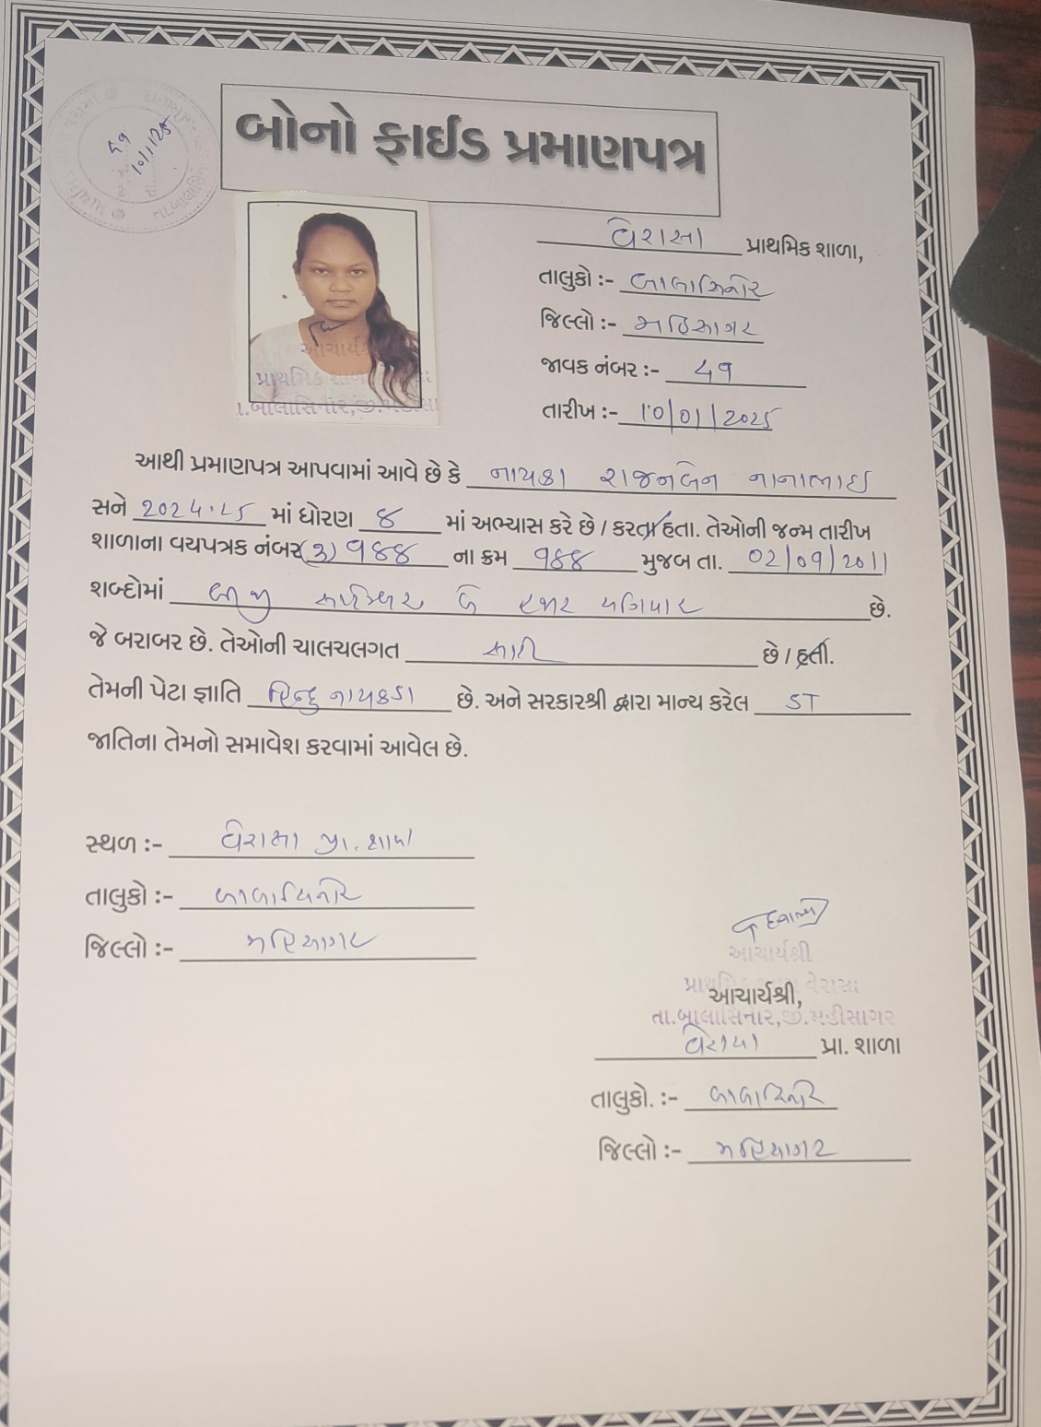 બોનો ફાઈડ પ્રમાણપત્ર
૬૧
10/1/25
વેરાસા પ્રાથમિક શાળા,
તાલુકો :- બાલાસિનોર
જિલ્લો :- મહિસાગર
જાવક નંબર :- ૬૧
તારીખ :- 10/01/2025
આચાર્ય
પ્રાથમિક શાળા
તા.બાલાસિનોર,જી.મહીસા
આથી પ્રમાણપત્ર આપવામાં આવે છે કે નાયકા રાજનબેન નાનાભાઇ
સને 2024-25 માં ધોરણ ૮ માં અભ્યાસ કરે છે / કરતા હતા. તેઓની જન્મ તારીખ
શાળાના વયપત્રક નંબર (૩) ૧૯૪૪ ના ક્રમ ૧૯૪૪ મુજબ તા. 02/09/2011
શબ્દોમાં બીજી સપ્ટેમ્બર બે હજાર અગિયાર છે.
જે બરાબર છે. તેઓની ચાલચલગત સારી છે / હતી.
તેમની પેટા જ્ઞાતિ હિન્દુ નાયકડા છે. અને સરકારશ્રી દ્વારા માન્ય કરેલ ST
જાતિના તેમનો સમાવેશ કરવામાં આવેલ છે.
સ્થળ :- વેરાસા પ્રા. શાળા
તાલુકો :- બાલાસિનોર
જિલ્લો :- મહિસાગર
આચાર્યશ્રી
પ્રાથમિક શાળા વેરાસા
આચાર્યશ્રી,
તા.બાલાસિનોર,જી.મહીસાગર
વેરાસા પ્રા. શાળા
તાલુકો. :- બાલાસિનોર
જિલ્લો :- મહિસાગર